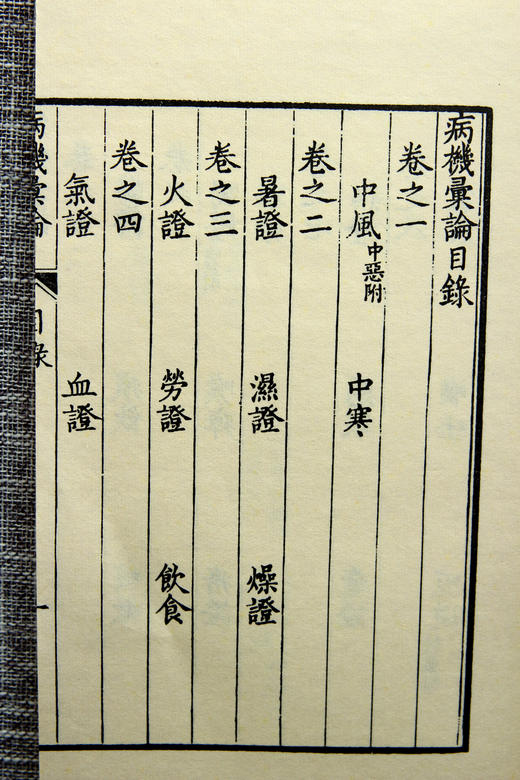 病機彙論目錄
卷之一
中風中惡附 中寒
卷之二
暑證 濕證 燥證
卷之三
火證 勞證 飲食
卷之四
氣證 血證
病機彙論 目錄 一